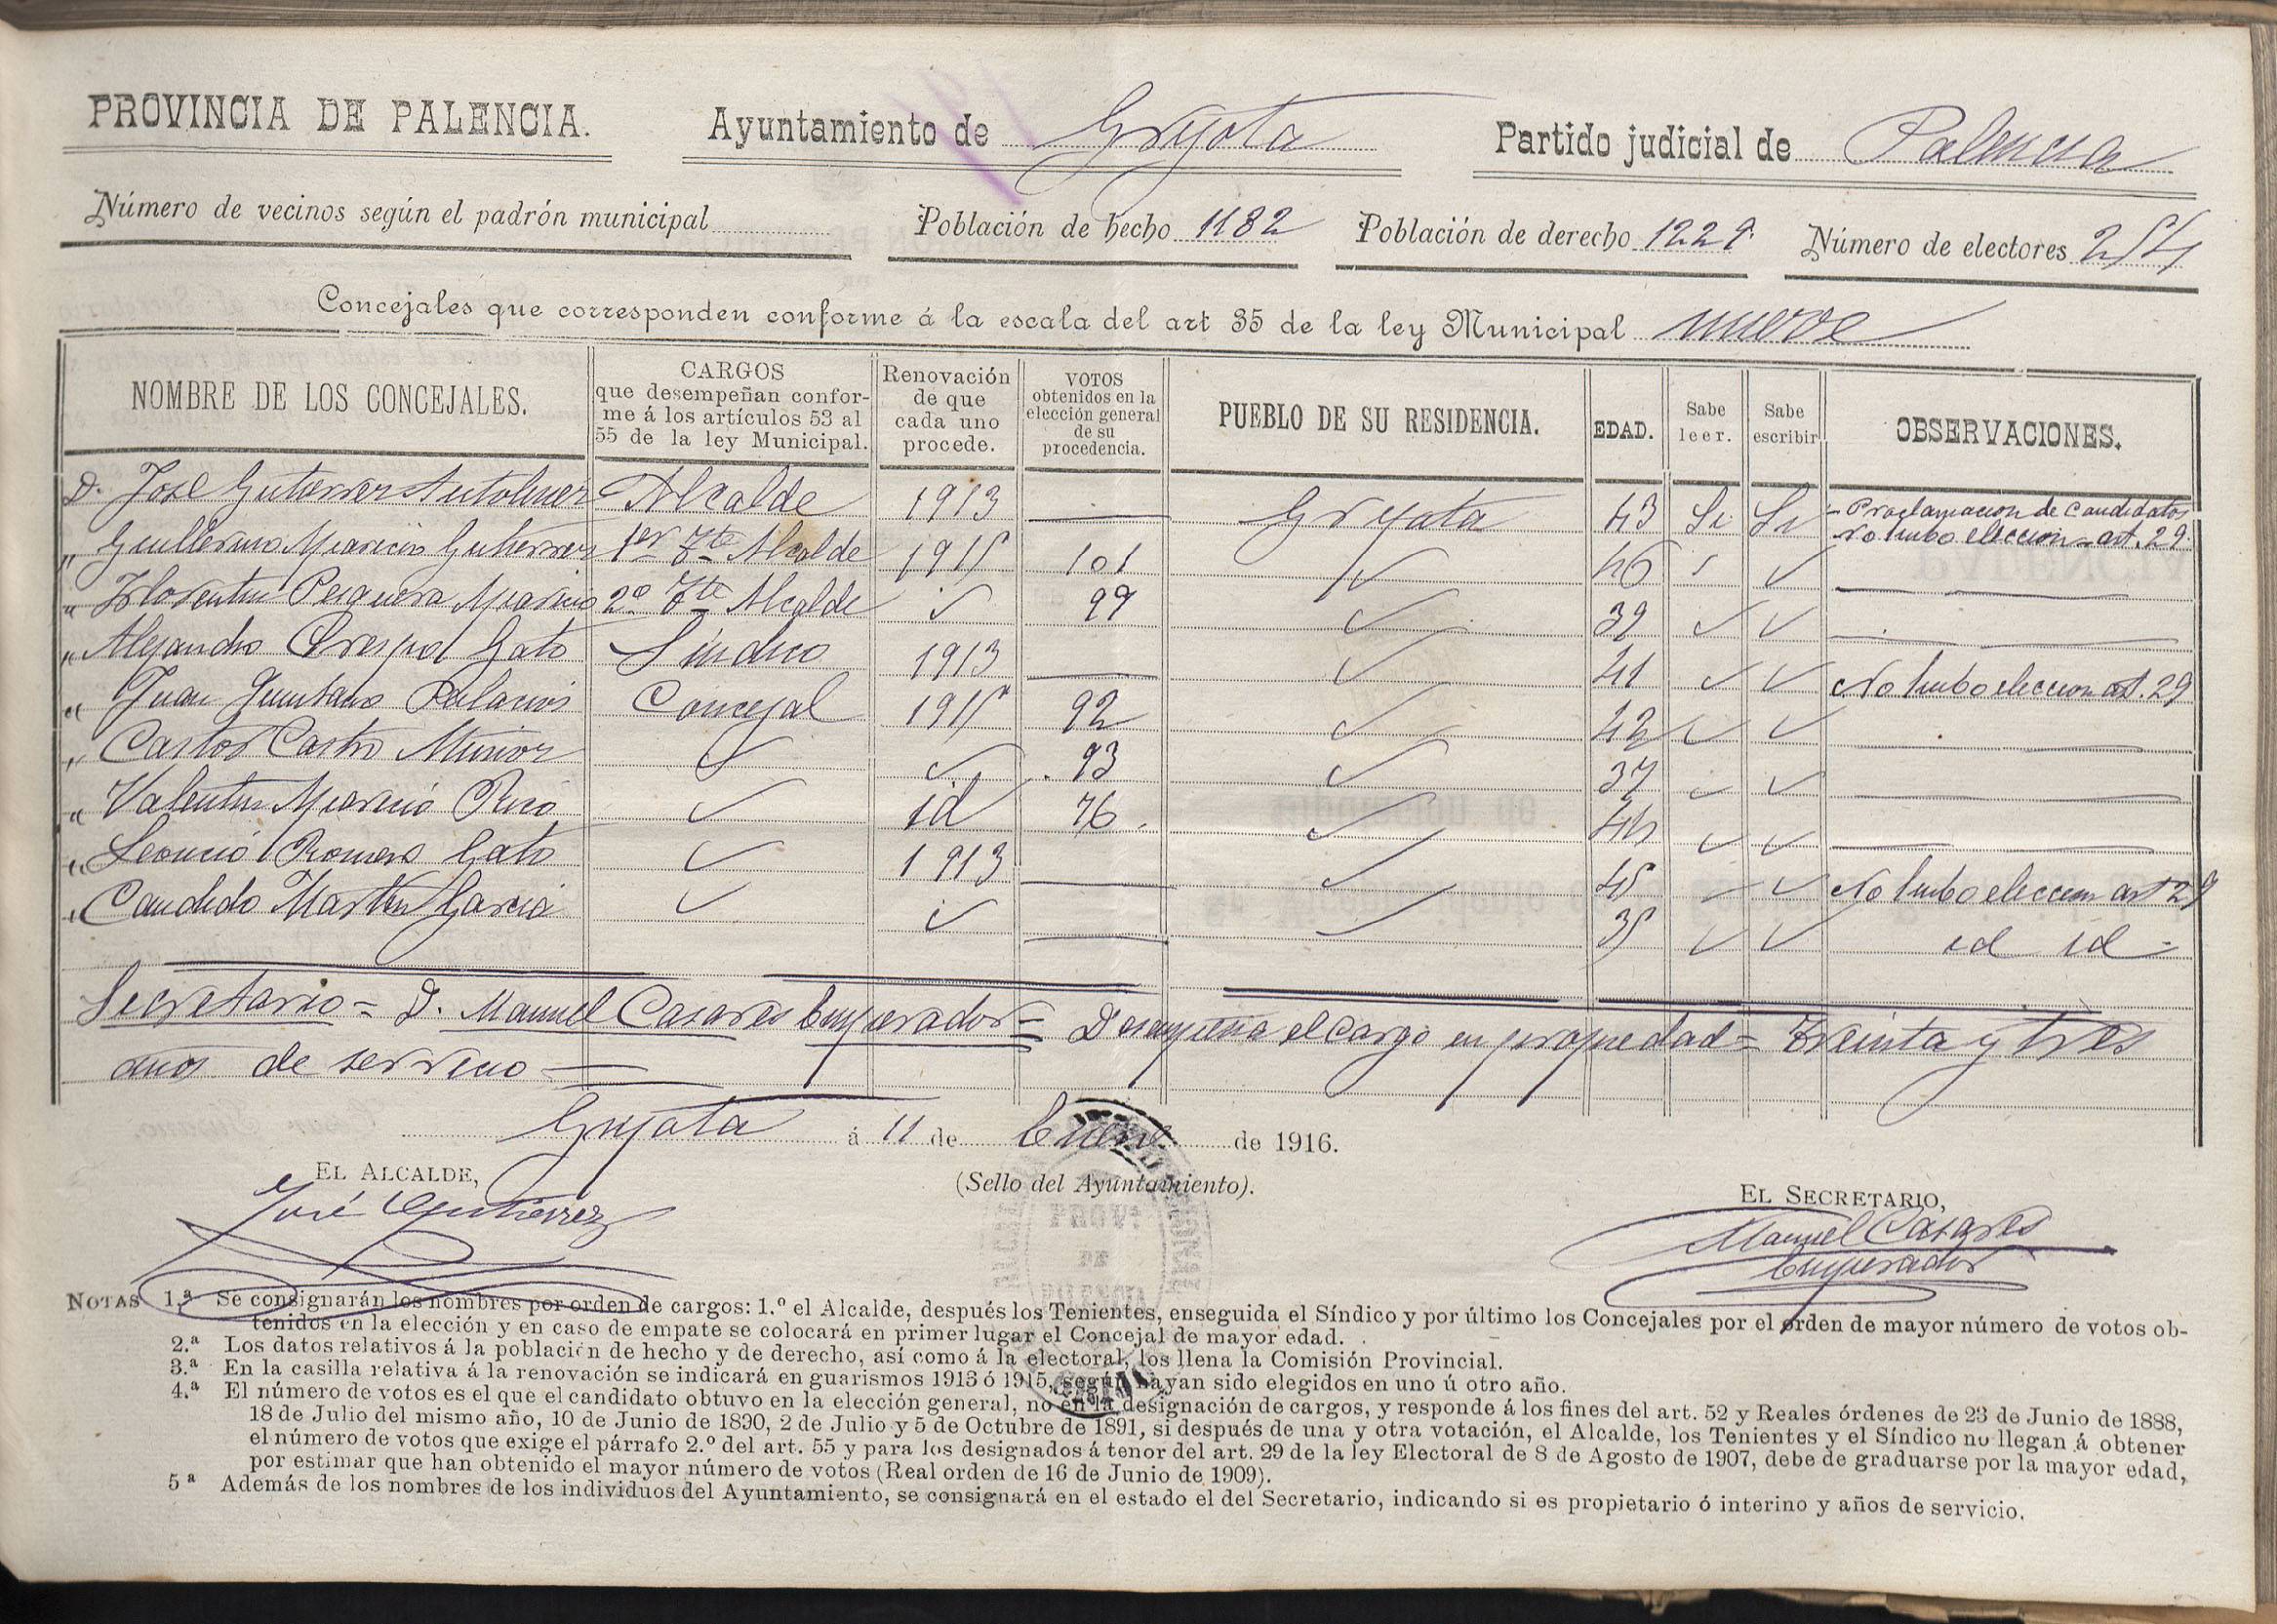 PROVINCIA DE PALENCIA. Ayuntamiento de Grijota Partido judicial de Palencia
Número de vecinos según el padrón municipal Población de hecho 1182 Población de derecho 1229 Número de electores 254
Concejales que corresponden conforme á la escala del art 35 de la ley Municipal nueve
NOMBRE DE LOS CONCEJALES. CARGOS que desempeñan confor- Renovación VOTOS PUEBLO DE SU RESIDENCIA. EDAD. Sabe Sabe OBSERVACIONES.
me á los artículos 53 al de que obtenidos en la leer. escribir
55 de la ley Municipal. cada uno elección general
procede. de su
procedencia.
D. José Gutierrez Antolinez Alcalde 1913 — Grijota 43 Si Si - Proclamacion de candidatos
No hubo eleccion art. 29.
" Guillermo Aparicio Gutierrez 1er Tte Alcalde 1915 101 46
" Florentin Pequera Aparicio 2º Tte Alcalde 99 39
" Alejandro Crespo Gato Sindico 1913 — 41 No hubo eleccion art. 29
" Juan Quintano Palacios Concejal 1915 92 42
" Castor Castro Muñoz 93 37
" Valentin Aparicio Rico id 76 44
" Leoncio Romero Gato 1913 — 45 No hubo eleccion art 29
" Candido Martin Garcia — 35 id id -
Secretario = D. Manuel Casares Emperador = Desempeña el cargo en propiedad = Treinta y tres
años de servicio =
Grijota á 11 de Enero de 1916.
EL ALCALDE, (Sello del Ayuntamiento). EL SECRETARIO,
José Gutierrez Manuel Casares
Emperador
NOTAS 1.ª Se consignarán los nombres por orden de cargos: 1.º el Alcalde, después los Tenientes, enseguida el Síndico y por último los Concejales por el orden de mayor número de votos ob-
tenidos en la elección y en caso de empate se colocará en primer lugar el Concejal de mayor edad.
2.ª Los datos relativos á la población de hecho y de derecho, así como á la electoral, los llena la Comisión Provincial.
3.ª En la casilla relativa á la renovación se indicará en guarismos 1913 ó 1915, según hayan sido elegidos en uno ú otro año.
4.ª El número de votos es el que el candidato obtuvo en la elección general, no en la designación de cargos, y responde á los fines del art. 52 y Reales órdenes de 23 de Junio de 1888,
18 de Julio del mismo año, 10 de Junio de 1890, 2 de Julio y 5 de Octubre de 1891, si después de una y otra votación, el Alcalde, los Tenientes y el Síndico no llegan á obtener
el número de votos que exige el párrafo 2.º del art. 55 y para los designados á tenor del art. 29 de la ley Electoral de 8 de Agosto de 1907, debe de graduarse por la mayor edad,
por estimar que han obtenido el mayor número de votos (Real orden de 16 de Junio de 1909).
5ª Además de los nombres de los individuos del Ayuntamiento, se consignará en el estado el del Secretario, indicando si es propietario ó interino y años de servicio.